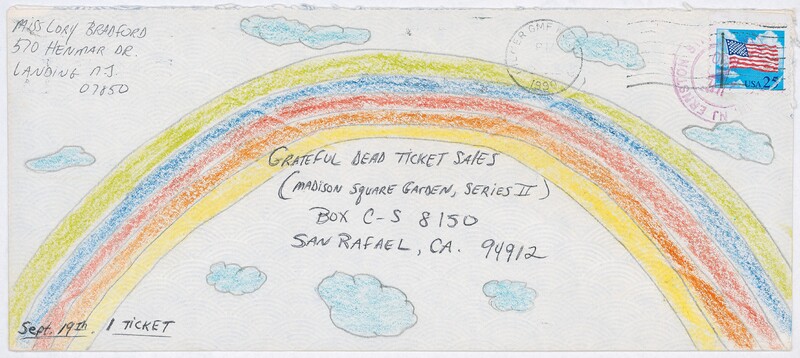 Miss Lory Bradford
570 Henmar Dr.
Landing N.J.
07850
GMF
USA 25
Grateful Dead Ticket Sales
(Madison Square Garden, Series II)
Box C-S 8150
San Rafael, CA. 94912
Sept. 19th. 1 Ticket